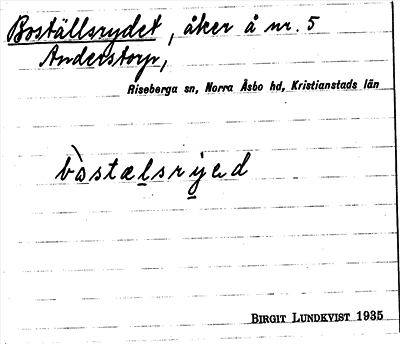 Boställsrydet, åker å nr. 5
Anderstorp,
Riseberga sn, Norra Åsbo hd, Kristianstads län
bòstælsryəd
BIRGIT LUNDKVIST 1935